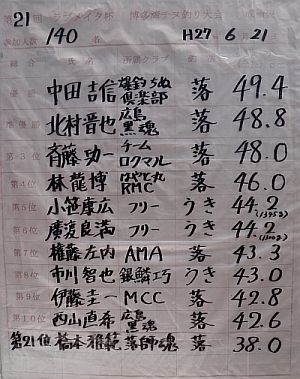 第21回 ラブメイタ杯 博多湾チヌ釣り大会 成績表
参加人数 140名 H27 6 21
総合 氏名 所属クラブ
優勝 中田吉信 雄釣ちぬ倶楽部 落 49.4
準優勝 北村晋也 広島黒魂 落 48.8
第3位 斉藤功一 チームロクマル 落 48.0
第4位 林龍博 はやと丸RMC 落 46.0
第5位 小笹康広 フリー うき 44.2
第6位 廣渡良満 フリー うき 44.2
第7位 権藤左内 AMA 落 43.3
第8位 市川智也 銀鱗工巧 うき 43.0
第9位 伊藤圭一 MCC 落 42.8
第10位 西山直希 広島黒魂 落 42.6
第21位 橋本雅範 落師魂 落 38.0